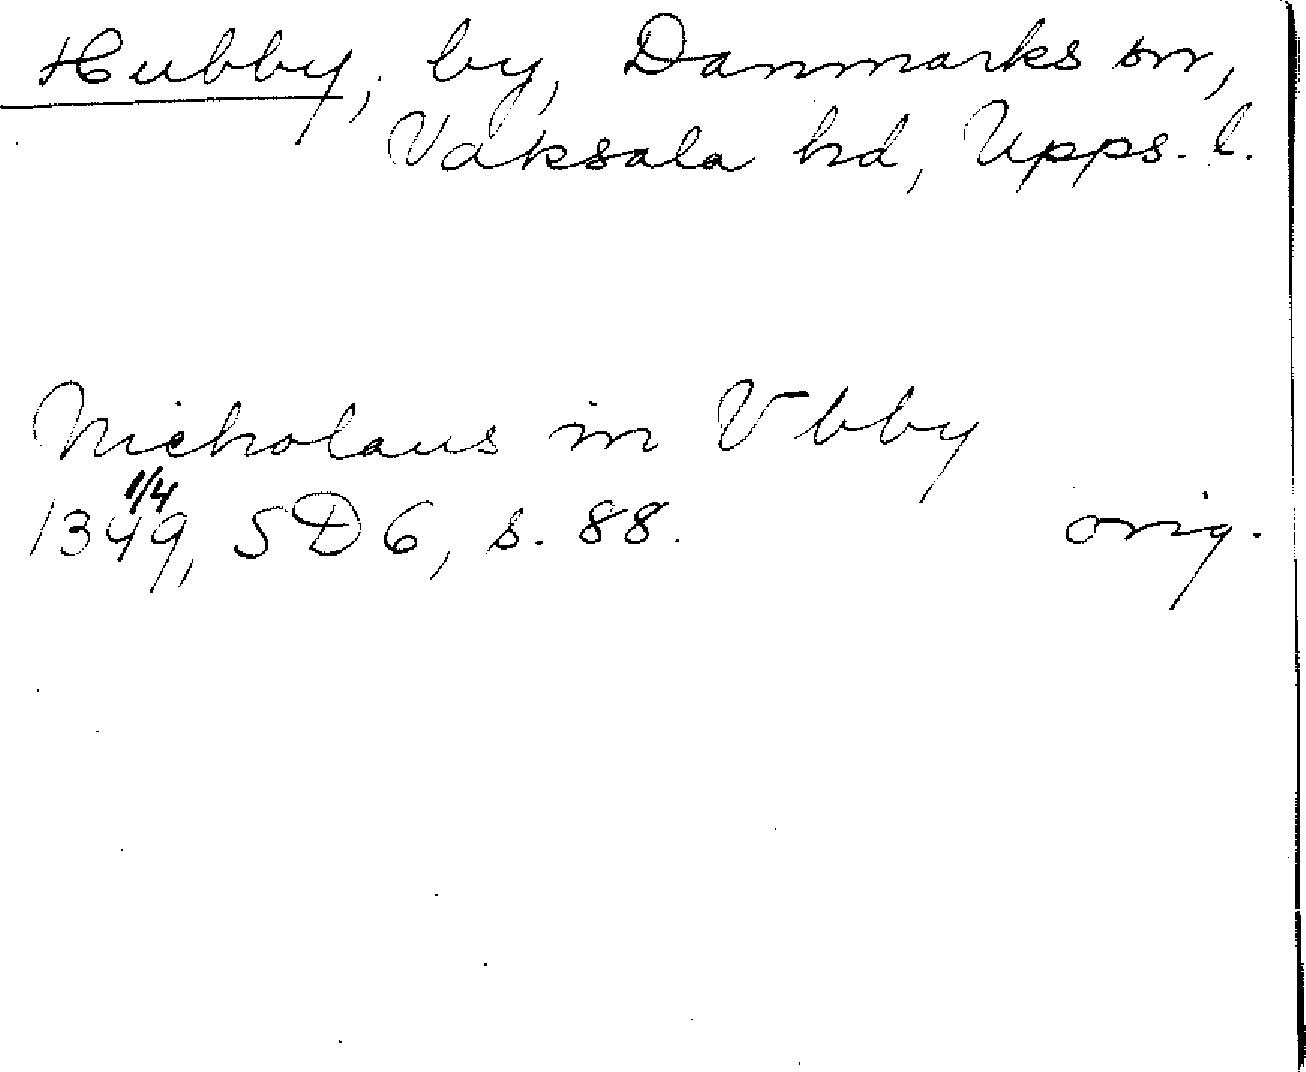 Hubby, by, Danmarks sn,
Vaksala hd, Upps. l.
Nicholaus in Vbby
1/4
1349, SD 6, s. 88. orig.